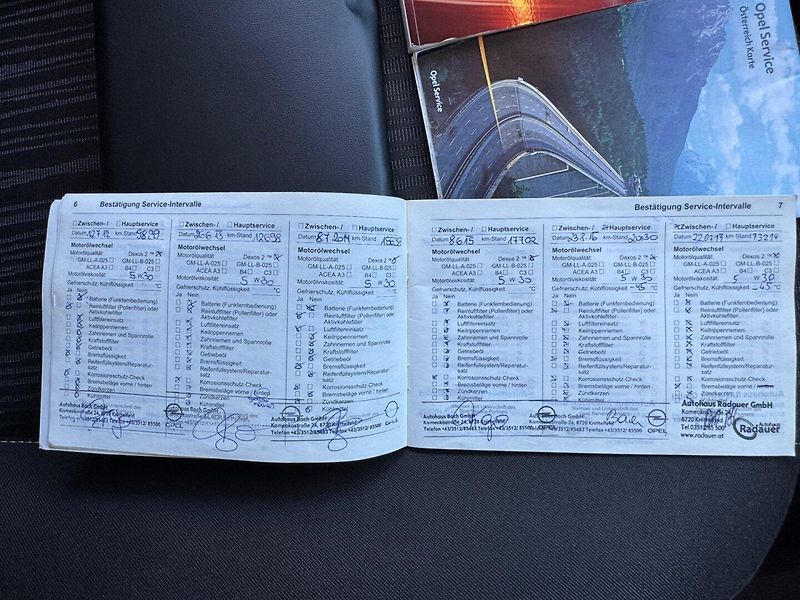 Opel Service
Österreich Karte
Opel Service
6 Bestätigung Service-Intervalle
Zwischen-/ Hauptservice
Datum km-Stand
Motorölwechsel
Motorölqualität: Dexos 2 ™
GM-LL-A-025 GM-LL-B-025
ACEA A3 B4 C3
Motorölviskosität: 5 W 30
Gefrierschutz, Kühlflüssigkeit °C
Ja Nein
Batterie (Funkfernbedienung)
Reinluftfilter (Pollenfilter) oder
Aktivkohlefilter
Luftfiltereinsatz
Keilrippenriemen
Zahnriemen und Spannrolle
Kraftstofffilter
Getriebeöl
Bremsflüssigkeit
Reifenfüllsystem/Reparatur-
satz
Korrosionsschutz-Check
Bremsbeläge vorne / hinten
Zündkerzen
Kühlmittel
Autohaus Bach GmbH
Kameokastraße 24, 8720 Knittelfeld
Telefon +43/3512/ 85500
Zwischen-/ Hauptservice
Datum km-Stand 12698
Motorölwechsel
Motorölqualität: Dexos 2 ™
GM-LL-A-025 GM-LL-B-025
ACEA A3 B4 C3
Motorölviskosität: 5 W 30
Gefrierschutz, Kühlflüssigkeit °C
Ja Nein
Batterie (Funkfernbedienung)
Reinluftfilter (Pollenfilter) oder
Aktivkohlefilter
Luftfiltereinsatz
Keilrippenriemen
Zahnriemen und Spannrolle
Kraftstofffilter
Getriebeöl
Bremsflüssigkeit
Reifenfüllsystem/Reparatur-
satz
Korrosionsschutz-Check
Bremsbeläge vorne / hinten
Zündkerzen
Kühlmittel
OPEL
Zwischen-/ Hauptservice
Datum 8.7.2014 km-Stand
Motorölwechsel
Motorölqualität: Dexos 2 ™
GM-LL-A-025 GM-LL-B-025
ACEA A3 B4 C3
Motorölviskosität: 5 W 30
Gefrierschutz, Kühlflüssigkeit °C
Ja Nein
Batterie (Funkfernbedienung)
Reinluftfilter (Pollenfilter) oder
Aktivkohlefilter
Luftfiltereinsatz
Keilrippenriemen
Zahnriemen und Spannrolle
Kraftstofffilter
Getriebeöl
Bremsflüssigkeit
Reifenfüllsystem/Reparatur-
satz
Korrosionsschutz-Check
Bremsbeläge vorne / hinten
Zündkerzen
Kühlmittel
Autohaus Bach GmbH
Bestätigung Service-Intervalle 7
Zwischen-/ Hauptservice
Datum 8.6.15 km-Stand 17702
Motorölwechsel
Motorölqualität: Dexos 2 ™
GM-LL-A-025 GM-LL-B-025
ACEA A3 B4 C3
Motorölviskosität: 5 W 30
Gefrierschutz, Kühlflüssigkeit °C
Ja Nein
Batterie (Funkfernbedienung)
Reinluftfilter (Pollenfilter) oder
Aktivkohlefilter
Luftfiltereinsatz
Keilrippenriemen
Zahnriemen und Spannrolle
Kraftstofffilter
Getriebeöl
Bremsflüssigkeit
Reifenfüllsystem/Reparatur-
satz
Korrosionsschutz-Check
Bremsbeläge vorne / hinten
Zündkerzen
Kühlmittel
Autohaus Bach GmbH
Kameokastraße 24, 8720 Knittelfeld
Zwischen-/ Hauptservice
Datum km-Stand
Motorölwechsel
Motorölqualität: Dexos 2 ™
GM-LL-A-025 GM-LL-B-025
ACEA A3 B4 C3
Motorölviskosität: 5 W 30
Gefrierschutz, Kühlflüssigkeit °C
Ja Nein
Batterie (Funkfernbedienung)
Reinluftfilter (Pollenfilter) oder
Aktivkohlefilter
Luftfiltereinsatz
Keilrippenriemen
Zahnriemen und Spannrolle
Kraftstofffilter
Getriebeöl
Bremsflüssigkeit
Reifenfüllsystem/Reparatur-
satz
Korrosionsschutz-Check
Bremsbeläge vorne / hinten
Zündkerzen
Kühlmittel
OPEL
Zwischen-/ Hauptservice
Datum 22.07.17 km-Stand 73214
Motorölwechsel
Motorölqualität: Dexos 2 ™
GM-LL-A-025 GM-LL-B-025
ACEA A3 B4 C3
Motorölviskosität: 5 W 30
Gefrierschutz, Kühlflüssigkeit °C
Ja Nein
Batterie (Funkfernbedienung)
Reinluftfilter (Pollenfilter) oder
Aktivkohlefilter
Luftfiltereinsatz
Keilrippenriemen
Zahnriemen und Spannrolle
Kraftstofffilter
Getriebeöl
Bremsflüssigkeit
Reifenfüllsystem/Reparatur-
satz
Korrosionsschutz-Check
Bremsbeläge vorne
Zündkerzen
Autohaus Radauer GmbH
Kameokastraße
8720 Knittelfeld
www.radauer.at
Autohaus
Radauer